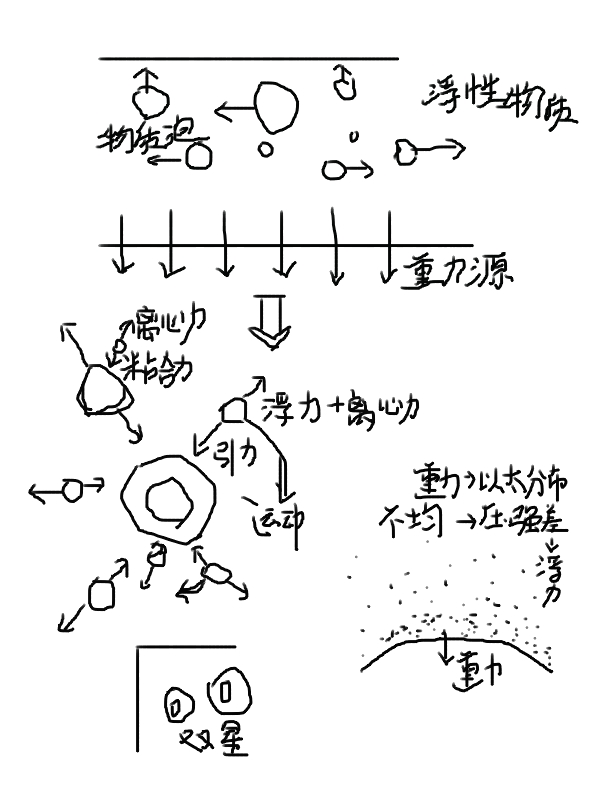 浮性物质
物质泡
重力源
离心力
粘合力
浮力+离心力
引力
运动
重力→以太分布
不均→压强差
→浮力
重力
双星